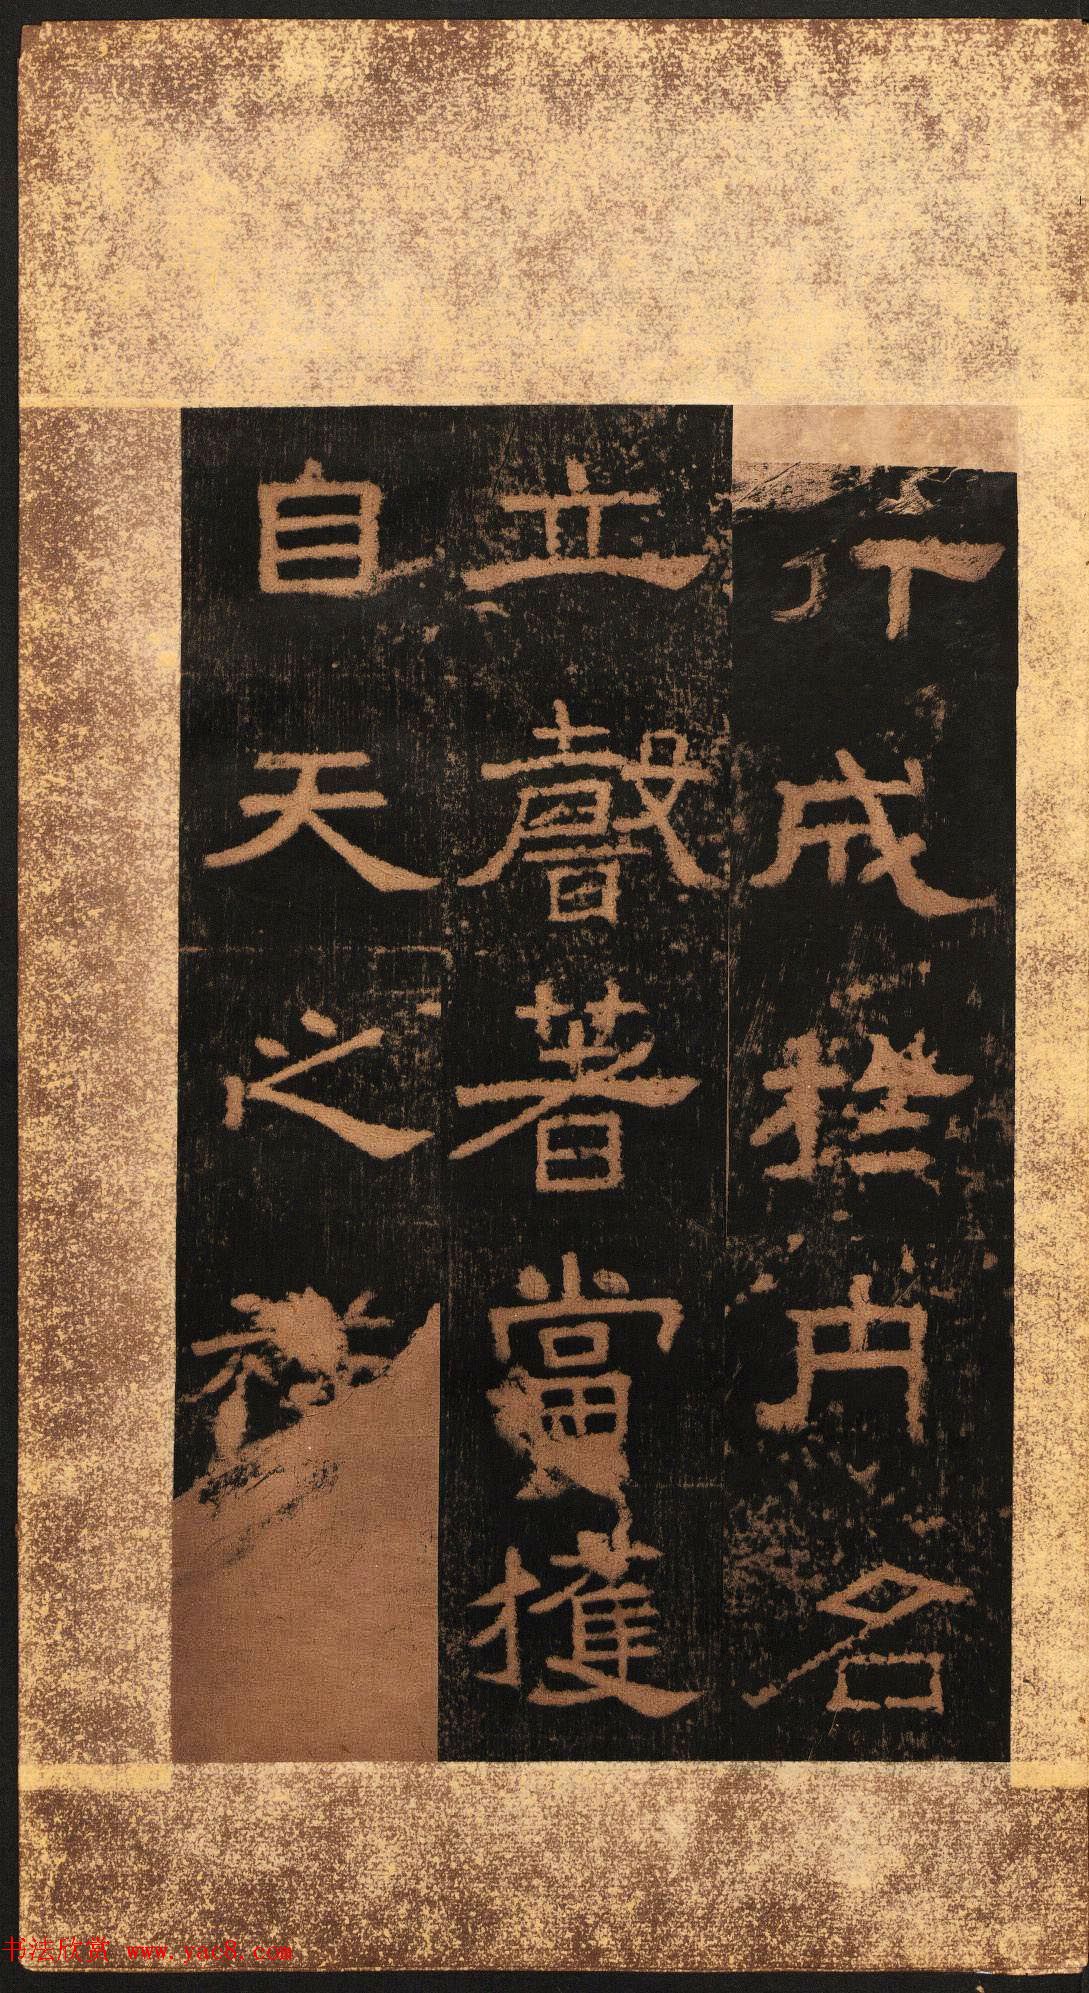 行成内名
立聲著當擭
自天之
书法欣赏 www.yac8.com